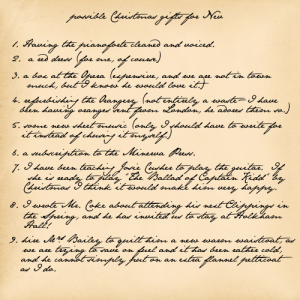 possible Christmas gifts for Neu
1. Having the pianoforte cleaned and voiced.
2. a red dress (for one, of course)
3. a box at the Opera (expensive, and we are not in town
much, but I know he would love it.)
4. refurbishing the Orangery (not entirely a waste— I have
been having oranges sent from London, he adores them so.)
5. some new sheet music (only I should have to write for
it instead of chusing it myself.)
6. a subscription to the Minerva Press.
7. I have been teaching Josie Cusher to play the guitar. If
she is ready to play "The Ballad of Captain Kidd" by
Christmas I think it would make him very happy.
8. I wrote Mr. Coke about attending his next Clippings in
the Spring, and he has invited us to stay at Holkham
Hall!
9. hire Mrs Bailey to quilt him a new warm waistcoat, as
we are trying to save on fuel and it has been rather cold,
and he cannot simply put on an extra flannel petticoat
as I do.